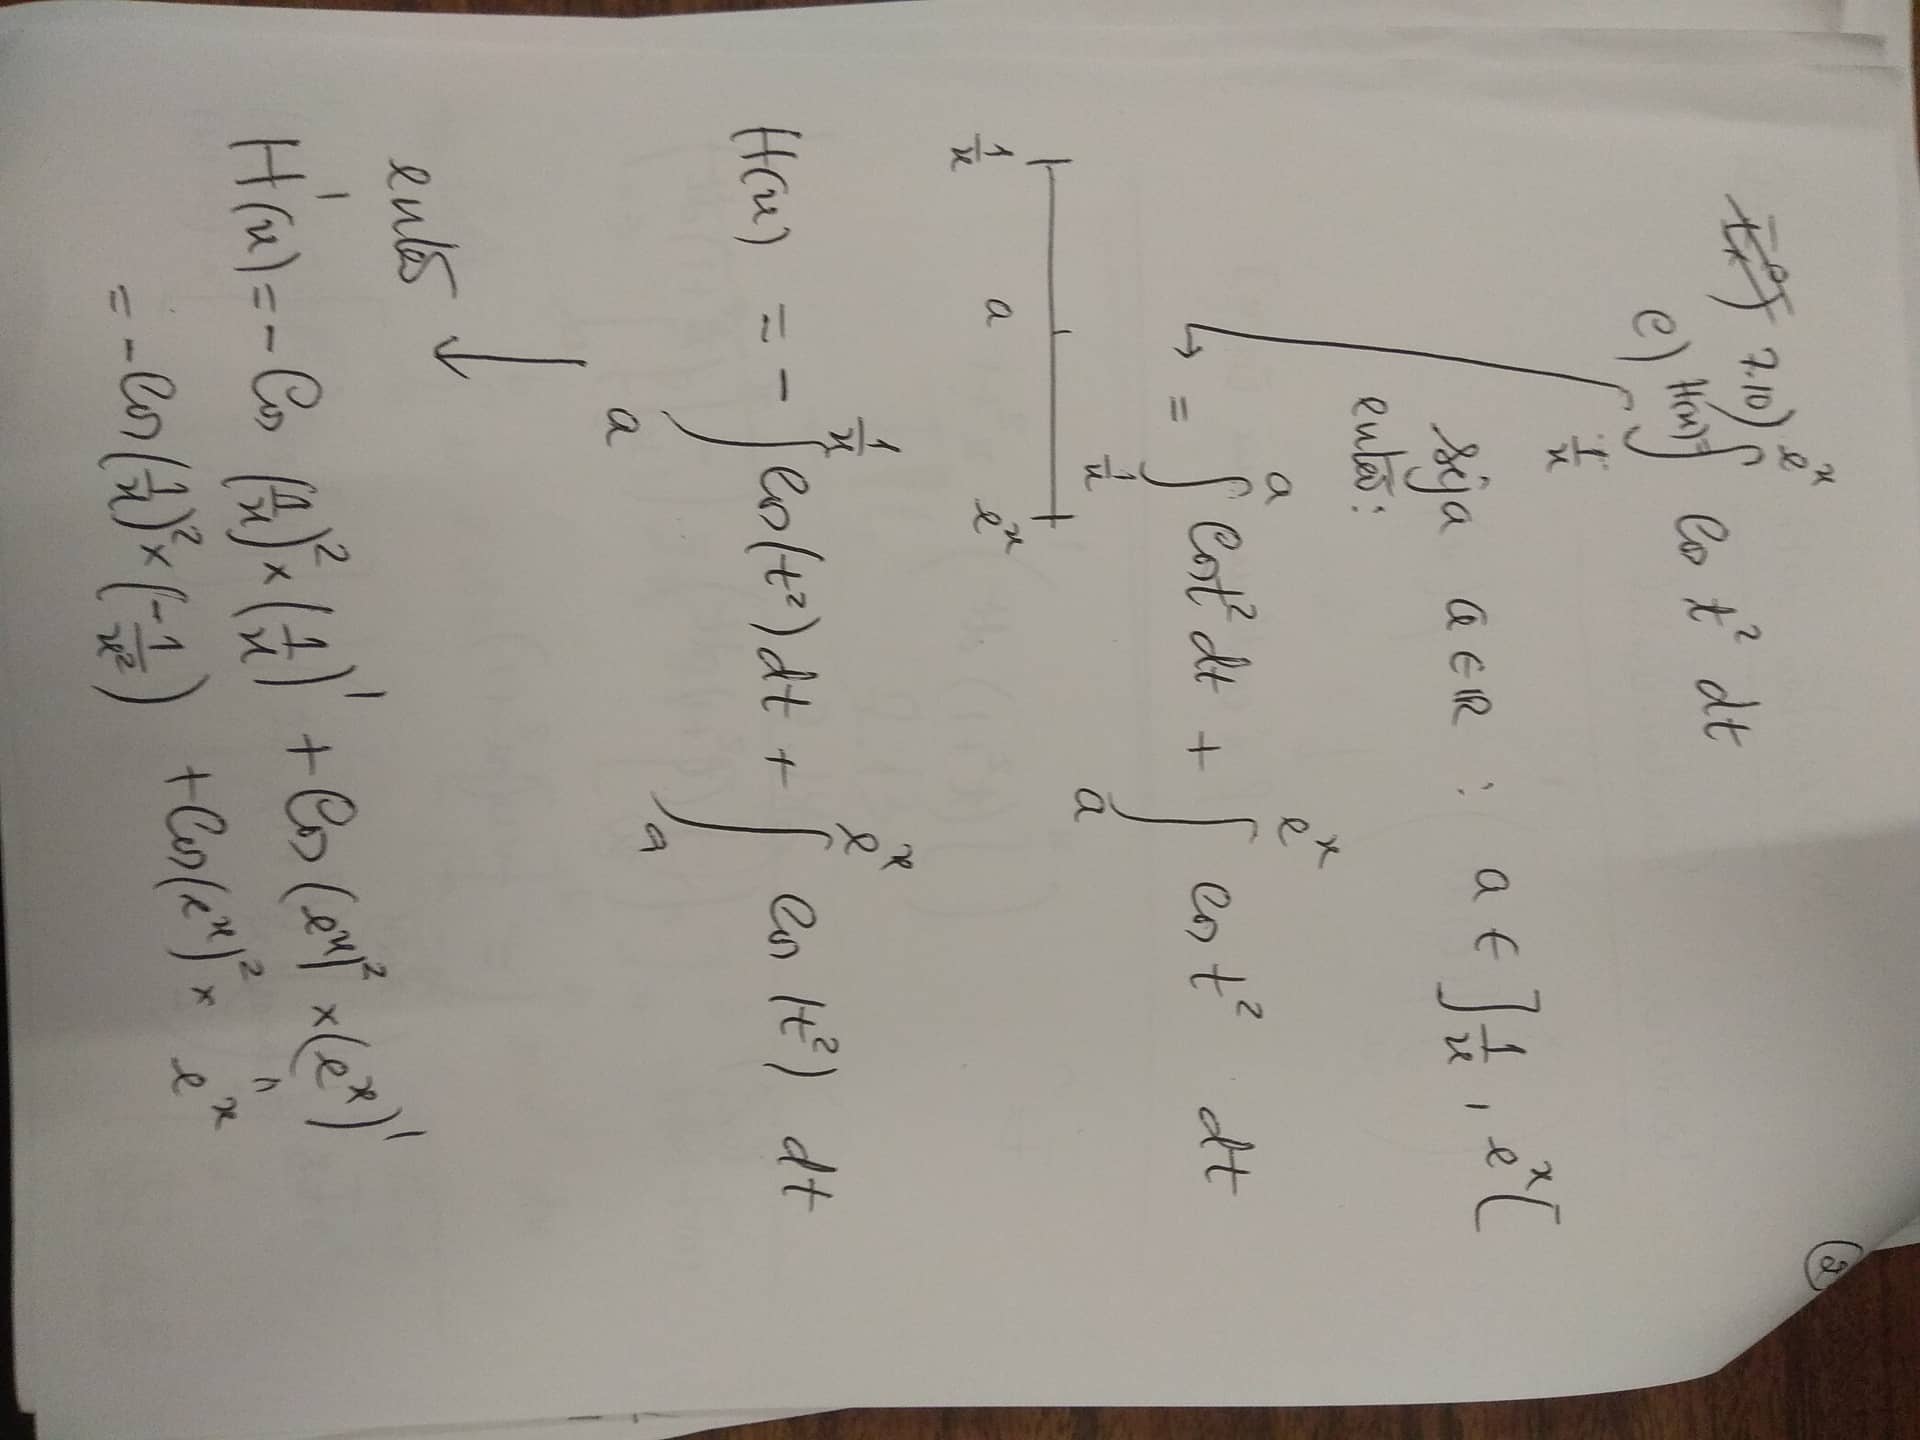 ②
7.10)
e) H(x) = ∫_{1/x}^{e^x} cos t² dt
seja a ∈ ℝ : a ∈ ]1/x , e^x[
então:
= ∫_{1/x}^{a} cos t² dt + ∫_{a}^{e^x} cos t² dt
1/x a e^x
H(x) = - ∫_{a}^{1/x} cos(t²) dt + ∫_{a}^{e^x} cos (t²) dt
então
H'(x) = - cos (1/x)² × (1/x)' + cos (e^x)² × (e^x)'
= - cos (1/x)² × (-1/x²) + cos (e^x)² × e^x